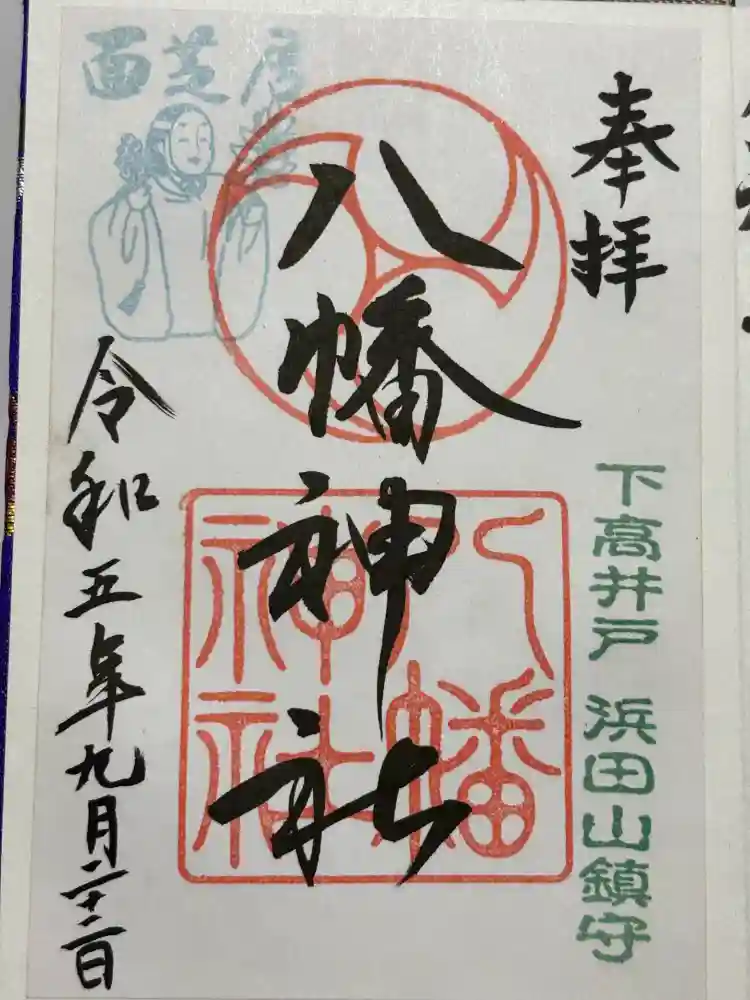 奉拝
下高井戸 浜田山鎮守
八幡神社
八幡神社
面芝居
令和五年九月二十二日